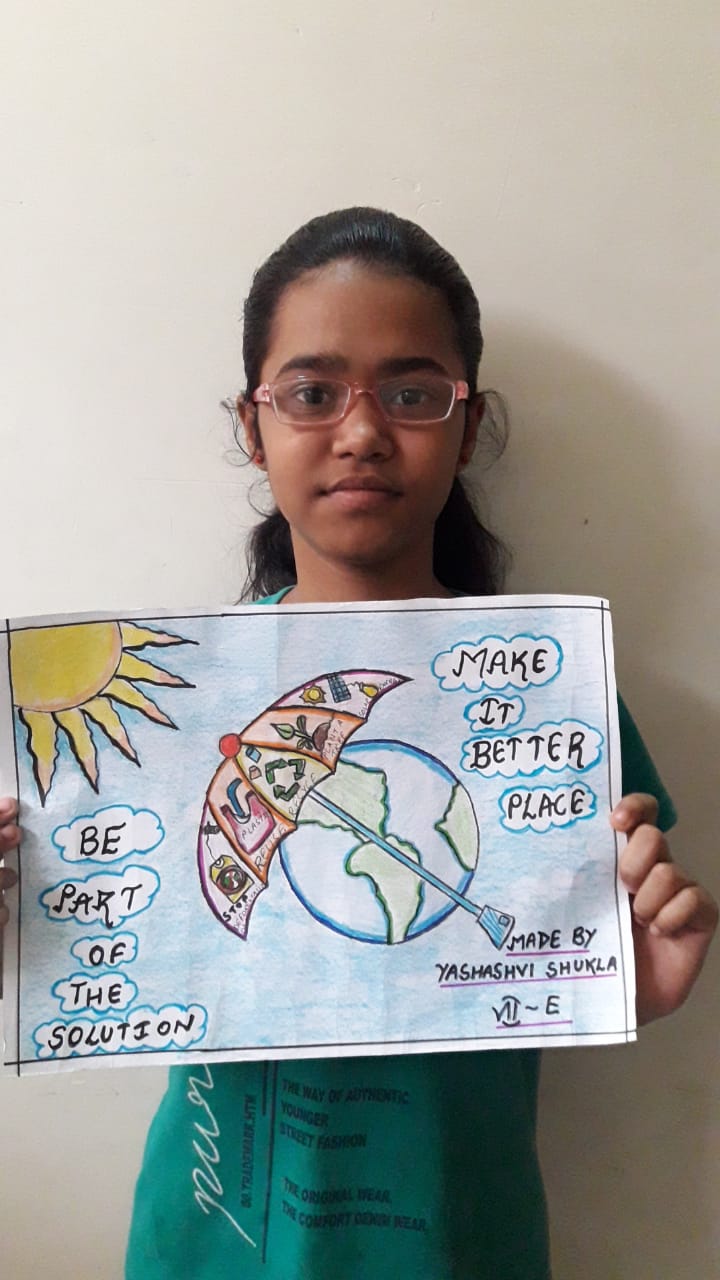 MAKE
IT
BETTER
PLACE
BE
PART
OF
THE
SOLUTION
PLANT A
TREE
RECYCLE
PLASTIC
REUSE
STOP
MADE BY
YASHASHVI SHUKLA
VII ~ E
pur
80.TRADEMARK.HTM
THE WAY OF AUTHENTIC
YOUNGER
STREET FASHION
THE ORIGINAL WEAR.
THE COMFORT DENIM WEAR.